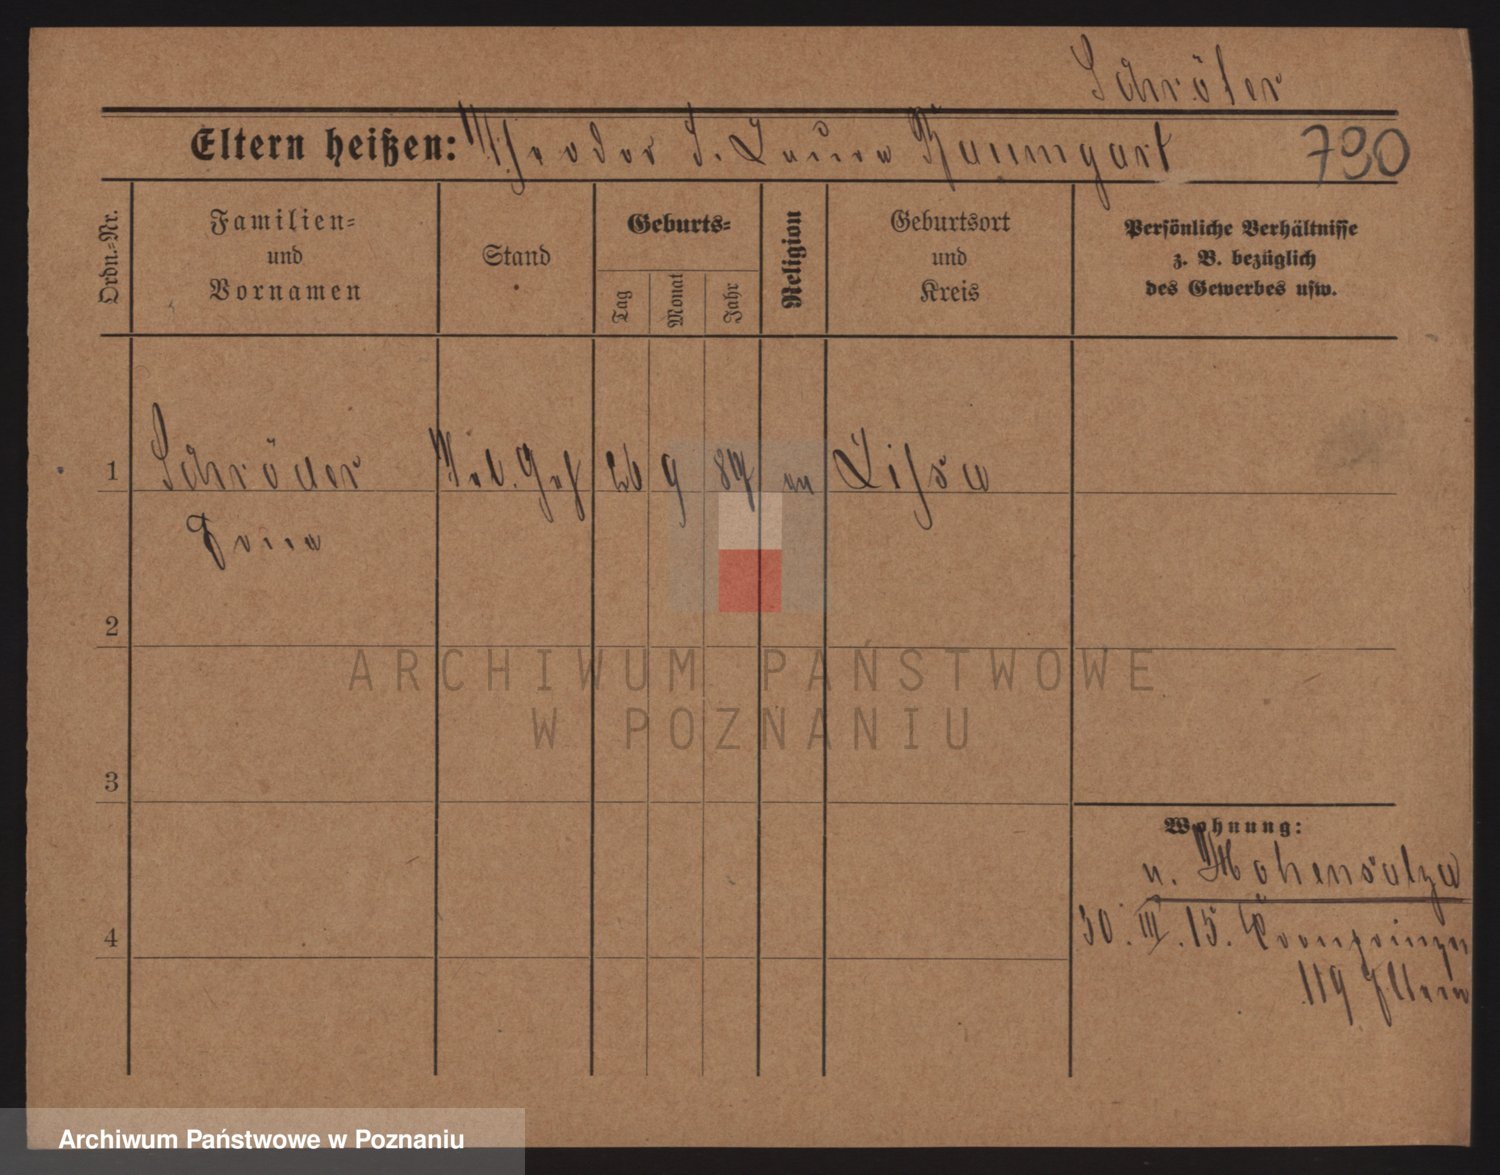 Schröter
Eltern heißen: Theodor u. Laura Baumgart 790
Ordn.-Nr.
Familien-
und
Vornamen
Stand
Geburts-
Tag
Monat
Jahr
Religion
Geburtsort
und
Kreis
Persönliche Verhältnisse
z. B. bezüglich
des Gewerbes usw.
1 Schröder 26 9 87 ev Lissa
2
3
4
Wohnung:
n. Hohensalza
30. III. 15. Kronprinzen
119 Eltern
ARCHIWUM PAŃSTWOWE
W POZNANIU
Archiwum Państwowe w Poznaniu